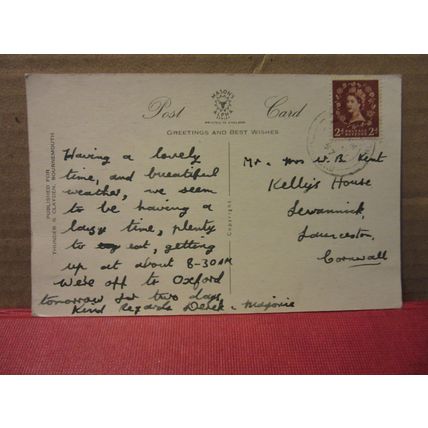 Post Card
MASON'S
ALPHA
GREETINGS AND BEST WISHES
PUBLISHED FOR
THUNDER & CLAYDEN, BOURNEMOUTH
Copyright
2d 2d
Having a lovely
time, and breautiful
weather, we seem
to be having a
lazy time, plenty
to eat, getting
up at about 8-30AM
We're off to Oxford
tomorrow for two days,
Kind Regards Derek & Marjorie
Mr. Mrs W. B. Kent
Kelly's House
Lewannick,
Launceston,
Cornwall